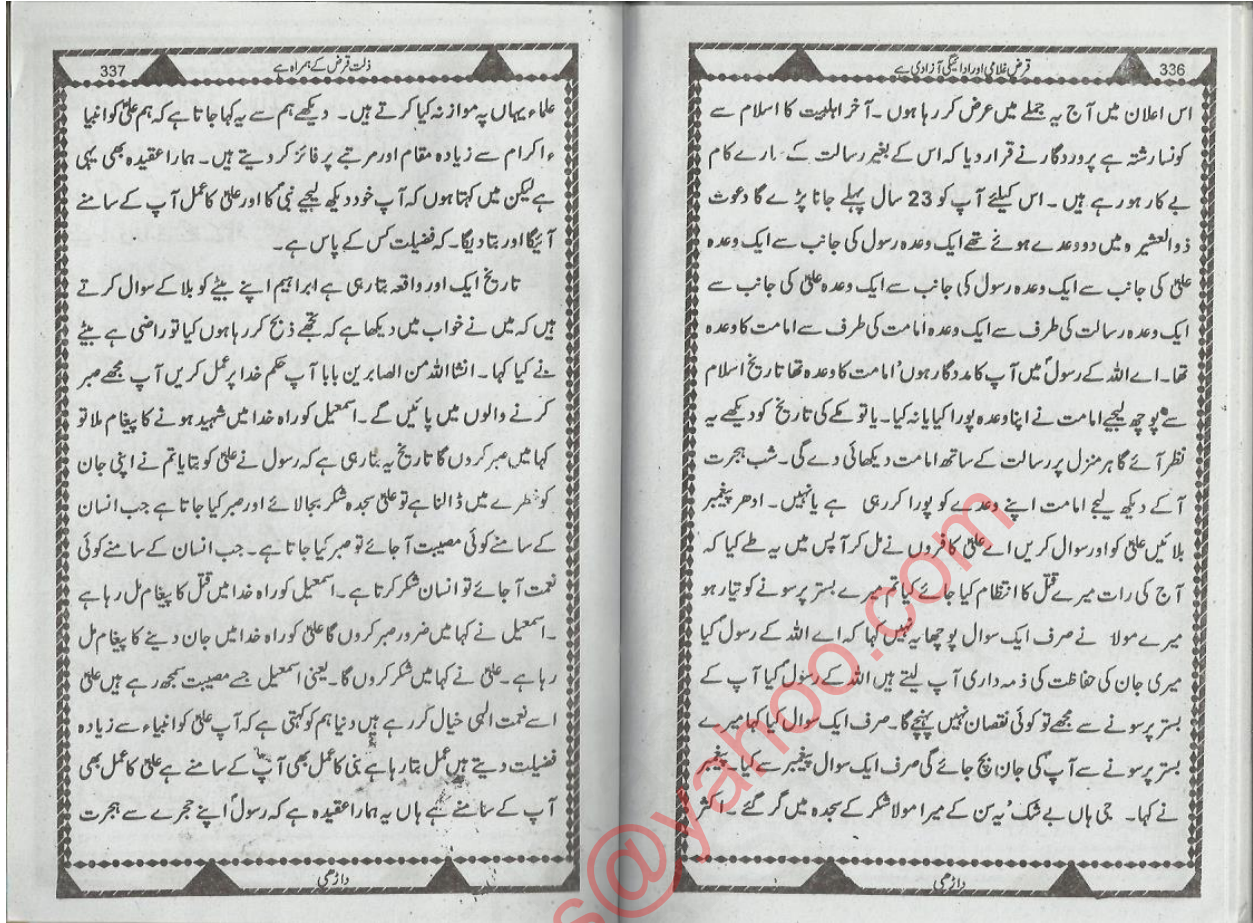 336
قرض غلامی اور ادائیگی آزادی ہے
اس اعلان میں آج یہ جملے میں عرض کر رہا ہوں۔ آخر اہلبیت کا اسلام سے
کونسا رشتہ ہے پروردگار نے قرار دیا کہ اس کے بغیر رسالت کے سارے کام
بے کار ہو رہے ہیں۔ اس کیلئے آپ کو 23 سال پہلے جانا پڑے گا دعوت
ذوالعشیرہ میں دو وعدے ہوئے تھے ایک وعدہ رسول کی جانب سے ایک وعدہ
علیؑ کی جانب سے ایک وعدہ رسولؐ کی جانب سے ایک وعدہ علیؑ کی جانب سے
ایک وعدہ رسالت کی طرف سے ایک وعدہ امامت کی طرف سے امامت کا وعدہ
تھا۔ اے اللہ کے رسولؐ میں آپ کا مددگار ہوں' امامت کا وعدہ تھا تاریخ اسلام
سے پوچھ لیجیے امامت نے اپنا وعدہ پورا کیا یا نہ کیا۔ یا تو مکے کی تاریخ کو دیکھے یہ
نظر آئے گا ہر منزل پر رسالت کے ساتھ امامت دیکھائی دے گی۔ شب ہجرت
آکے دیکھ لیجے امامت اپنے وعدے کو پورا کر رہی ہے یا نہیں۔ ادھر پیغمبر
بلائیں علیؑ کو اور سوال کریں اے علیؑ کافروں نے مل کر آپس میں یہ طے کیا کہ
آج کی رات میرے قتل کا انتظام کیا جائے کیا تم میرے بستر پر سونے کو تیار ہو
میرے مولا نے صرف ایک سوال پوچھا یہ نہیں کہا کہ اے اللہ کے رسولؐ کیا
میری جان کی حفاظت کی ذمہ داری آپ لیتے ہیں اللہ کے رسولؐ کیا آپ کے
بستر پر سونے سے مجھے تو کوئی نقصان نہیں پہنچے گا۔ صرف ایک سوال کیا کہا میرے
بستر پر سونے سے آپ کی جان بچ جائے گی صرف ایک سوال پیغمبر سے کیا۔ پیغمبر
نے کہا۔ جی ہاں بے شک' یہ سن کے میرا مولا شکر کے سجدہ میں گر گئے۔ اکثر
داڑھی
337
ذلت قرض کے ہمراہ ہے
علماء یہاں پہ موازنہ کیا کرتے ہیں۔ دیکھے ہم سے یہ کہا جاتا ہے کہ ہم علیؑ کو انبیا
ء اکرام سے زیادہ مقام اور مرتبے پر فائز کر دیتے ہیں۔ ہمارا عقیدہ بھی یہی
ہے لیکن میں کہتا ہوں کہ آپ خود دیکھ لیجیے نبیؐ کا اور علیؑ کا عمل آپ کے سامنے
آئیگا اور بتا دیگا۔ کہ فضیلت کس کے پاس ہے۔
تاریخ ایک اور واقعہ بتا رہی ہے ابراہیم اپنے بیٹے کو بلا کے سوال کرتے
ہیں کہ میں نے خواب میں دیکھا ہے کہ تجھے ذبح کر رہا ہوں کیا تو راضی ہے بیٹے
نے کیا کہا۔ انشااللہ من الصابرین بابا آپ حکم خدا پر عمل کریں آپ مجھے صبر
کرنے والوں میں پائیں گے۔ اسمعیل کو راہ خدا میں شہید ہونے کا پیغام ملا تو
کہا میں صبر کروں گا تاریخ یہ بتا رہی ہے کہ رسول نے علیؑ کو بتایا تم نے اپنی جان
کو خطرے میں ڈالنا ہے تو علیؑ سجدہ شکر بجا لائے اور صبر کیا جاتا ہے جب انسان
کے سامنے کوئی مصیبت آ جائے تو صبر کیا جاتا ہے۔ جب انسان کے سامنے کوئی
نعمت آ جائے تو انسان شکر کرتا ہے۔ اسمعیل کو راہ خدا میں قتل کا پیغام مل رہا ہے
۔ اسمعیل نے کہا میں ضرور صبر کروں گا علیؑ کو راہ خدا میں جان دینے کا پیغام مل
رہا ہے۔ علیؑ نے کہا میں شکر کروں گا۔ یعنی اسمعیل جسے مصیبت سمجھ رہے ہیں علیؑ
اسے نعمت الٰہی خیال کر رہے ہیں دنیا ہم کو کہتی ہے کہ آپ علیؑ کو انبیاء سے زیادہ
فضیلت دیتے ہیں عمل بتا رہا ہے نبی کا عمل بھی آپ کے سامنے ہے علیؑ کا عمل بھی
آپ کے سامنے ہے ہاں یہ ہمارا عقیدہ ہے کہ رسولؐ اپنے حجرے سے ہجرت
داڑھی
s@yahoo.com